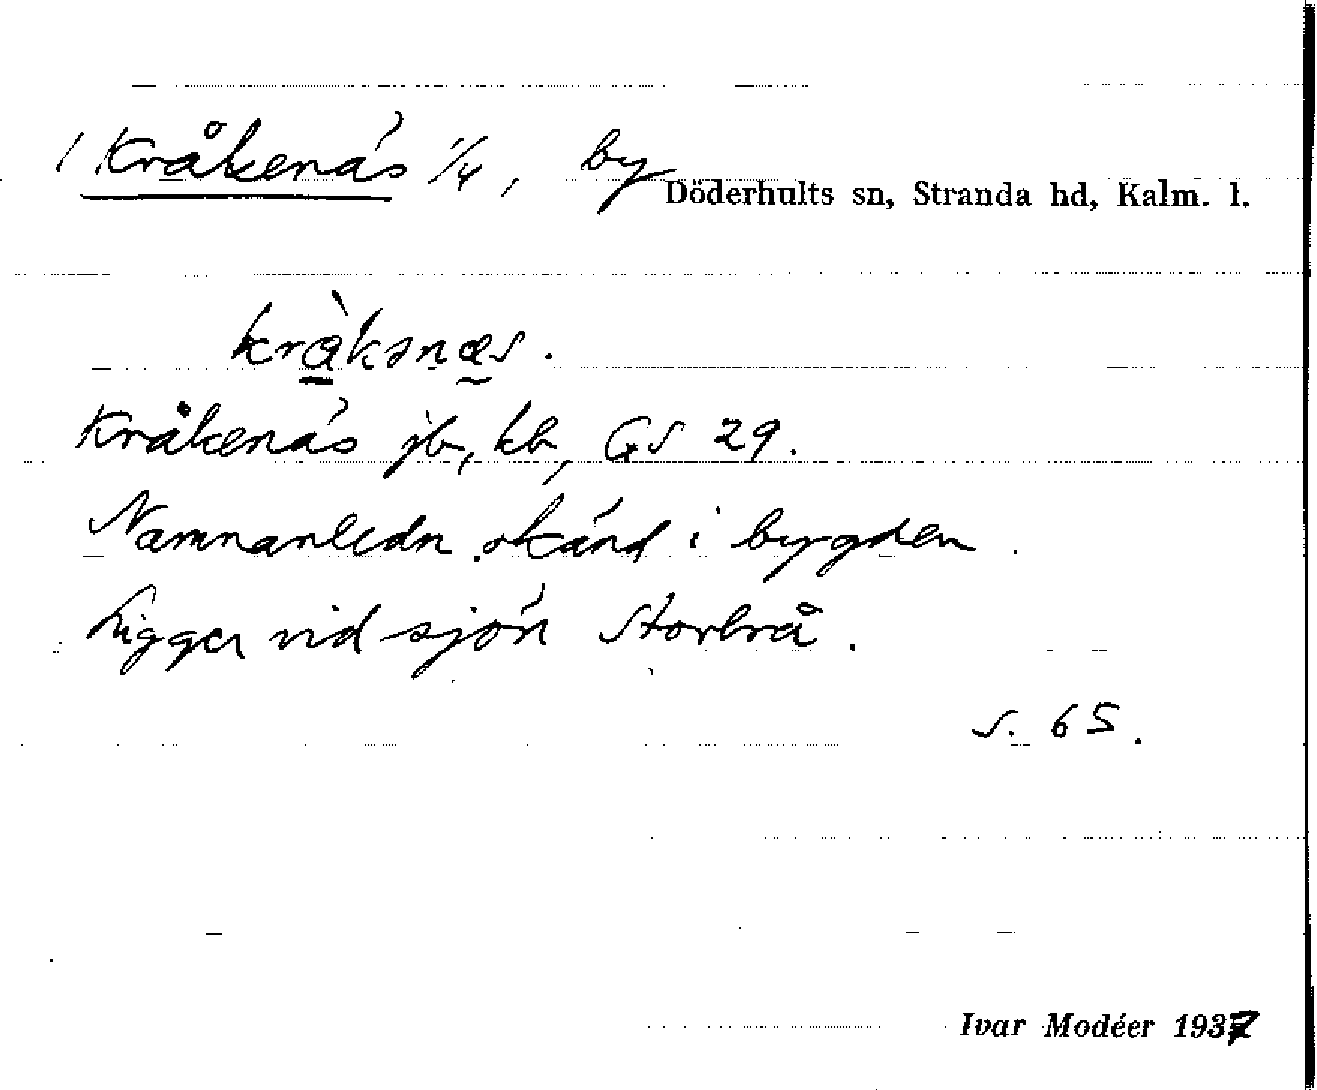 1 Kråkenäs 1/4, by Döderhults sn, Stranda hd, Kalm. l.
kràkənæs.
Kråkenäs jb, kb, GS 29.
Namnanledn. okänd i bygden.
Ligger vid sjön Storbrå.
s. 65.
Ivar Modéer 1937